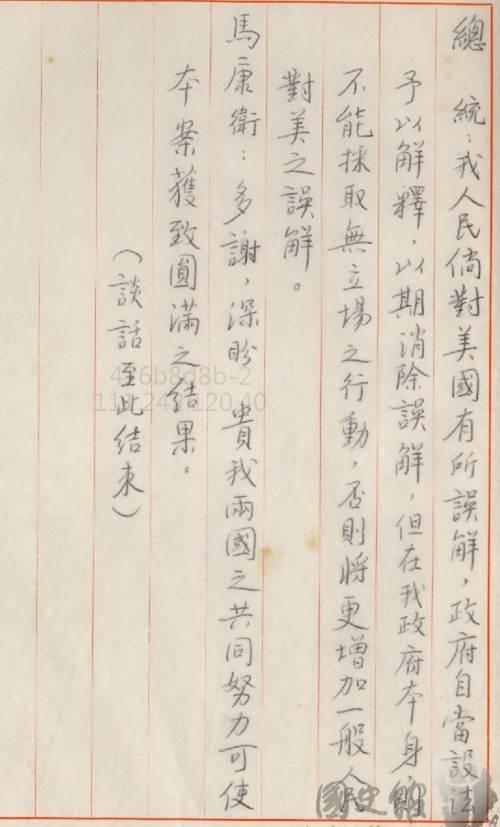 總　統：我人民倘對美國有所誤解，政府自當設法
予以解釋，以期消除誤解，但在我政府本身
不能採取無立場之行動，否則將更增加一般人民
對美之誤解。
馬康衛：多謝，深盼　貴我兩國之共同努力可使
本案獲致圓滿之結果。
（談話至此結束）
國史館